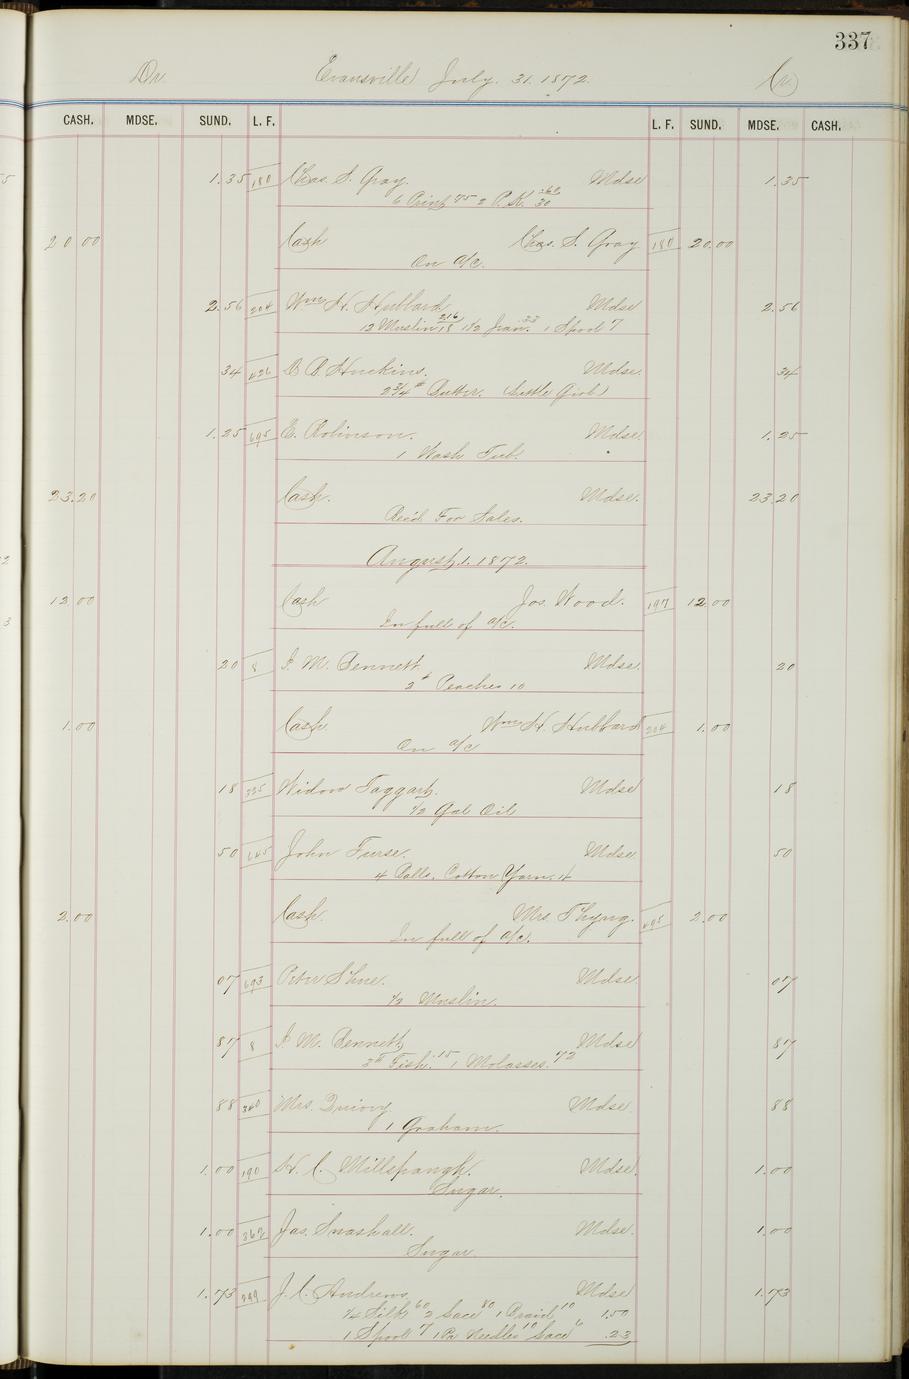 337
Dr. Evansville July. 31. 1872. Cr.
CASH. MDSE. SUND. L. F. L. F. SUND. MDSE. CASH.
1.35 180 Chas. S. Gray. Mdse 1.35
6 Print 75 2 P.K. .60 30
20 00 Cash Chas. S. Gray 180 20.00
On a/c.
2.56 204 Wm H. Hubbard Mdse 2.56
12 Muslin 2.16 18 1 1/2 Jean .33 1 Spool 7
34 426 Huckins. Mdse. 34
2 3/4 # Butter. (Little Girl)
1.25 695 E. Robinson. Mdse. 1.25
1 Wash Tub.
23.20 Cash. Mdse. 23.20
Rec'd For Sales.
August. 1. 1872.
12.00 Cash Jos. Wood. 197 12.00
In full of a/c.
20 8 I. M. Bennett Mdse. 20
2 # Peaches 10
1.00 Cash Wm H. Hubbard 204 1.00
On a/c
18 335 Widow Taggart. Mdse 18
1/2 Gal Oil
50 645 John Furse. Mdse. 50
4 Balls. Cotton Yarn.
2.00 Cash. Mrs. Thyng. 495 2.00
In full of a/c.
07 693 Peter Shue. Mdse. 07
1/2 Muslin.
87 8 I. M. Bennett Mdse 87
3 # Fish. .15 1 Molasses. 72
88 340 Mrs. Quivey Mdse. 88
1 Graham.
1.00 190 H. C. Millspaugh. Mdse. 1.00
Sugar.
1.00 362 Jas. Snashall. Mdse. 1.00
Sugar.
1.73 299 J. C. Andrews Mdse 1.73
1/4 Silk 60 2 Lace 80 1 Braid 10 1.50
1 Spool 7 1 Pa Needles 10 Lace 6 .23